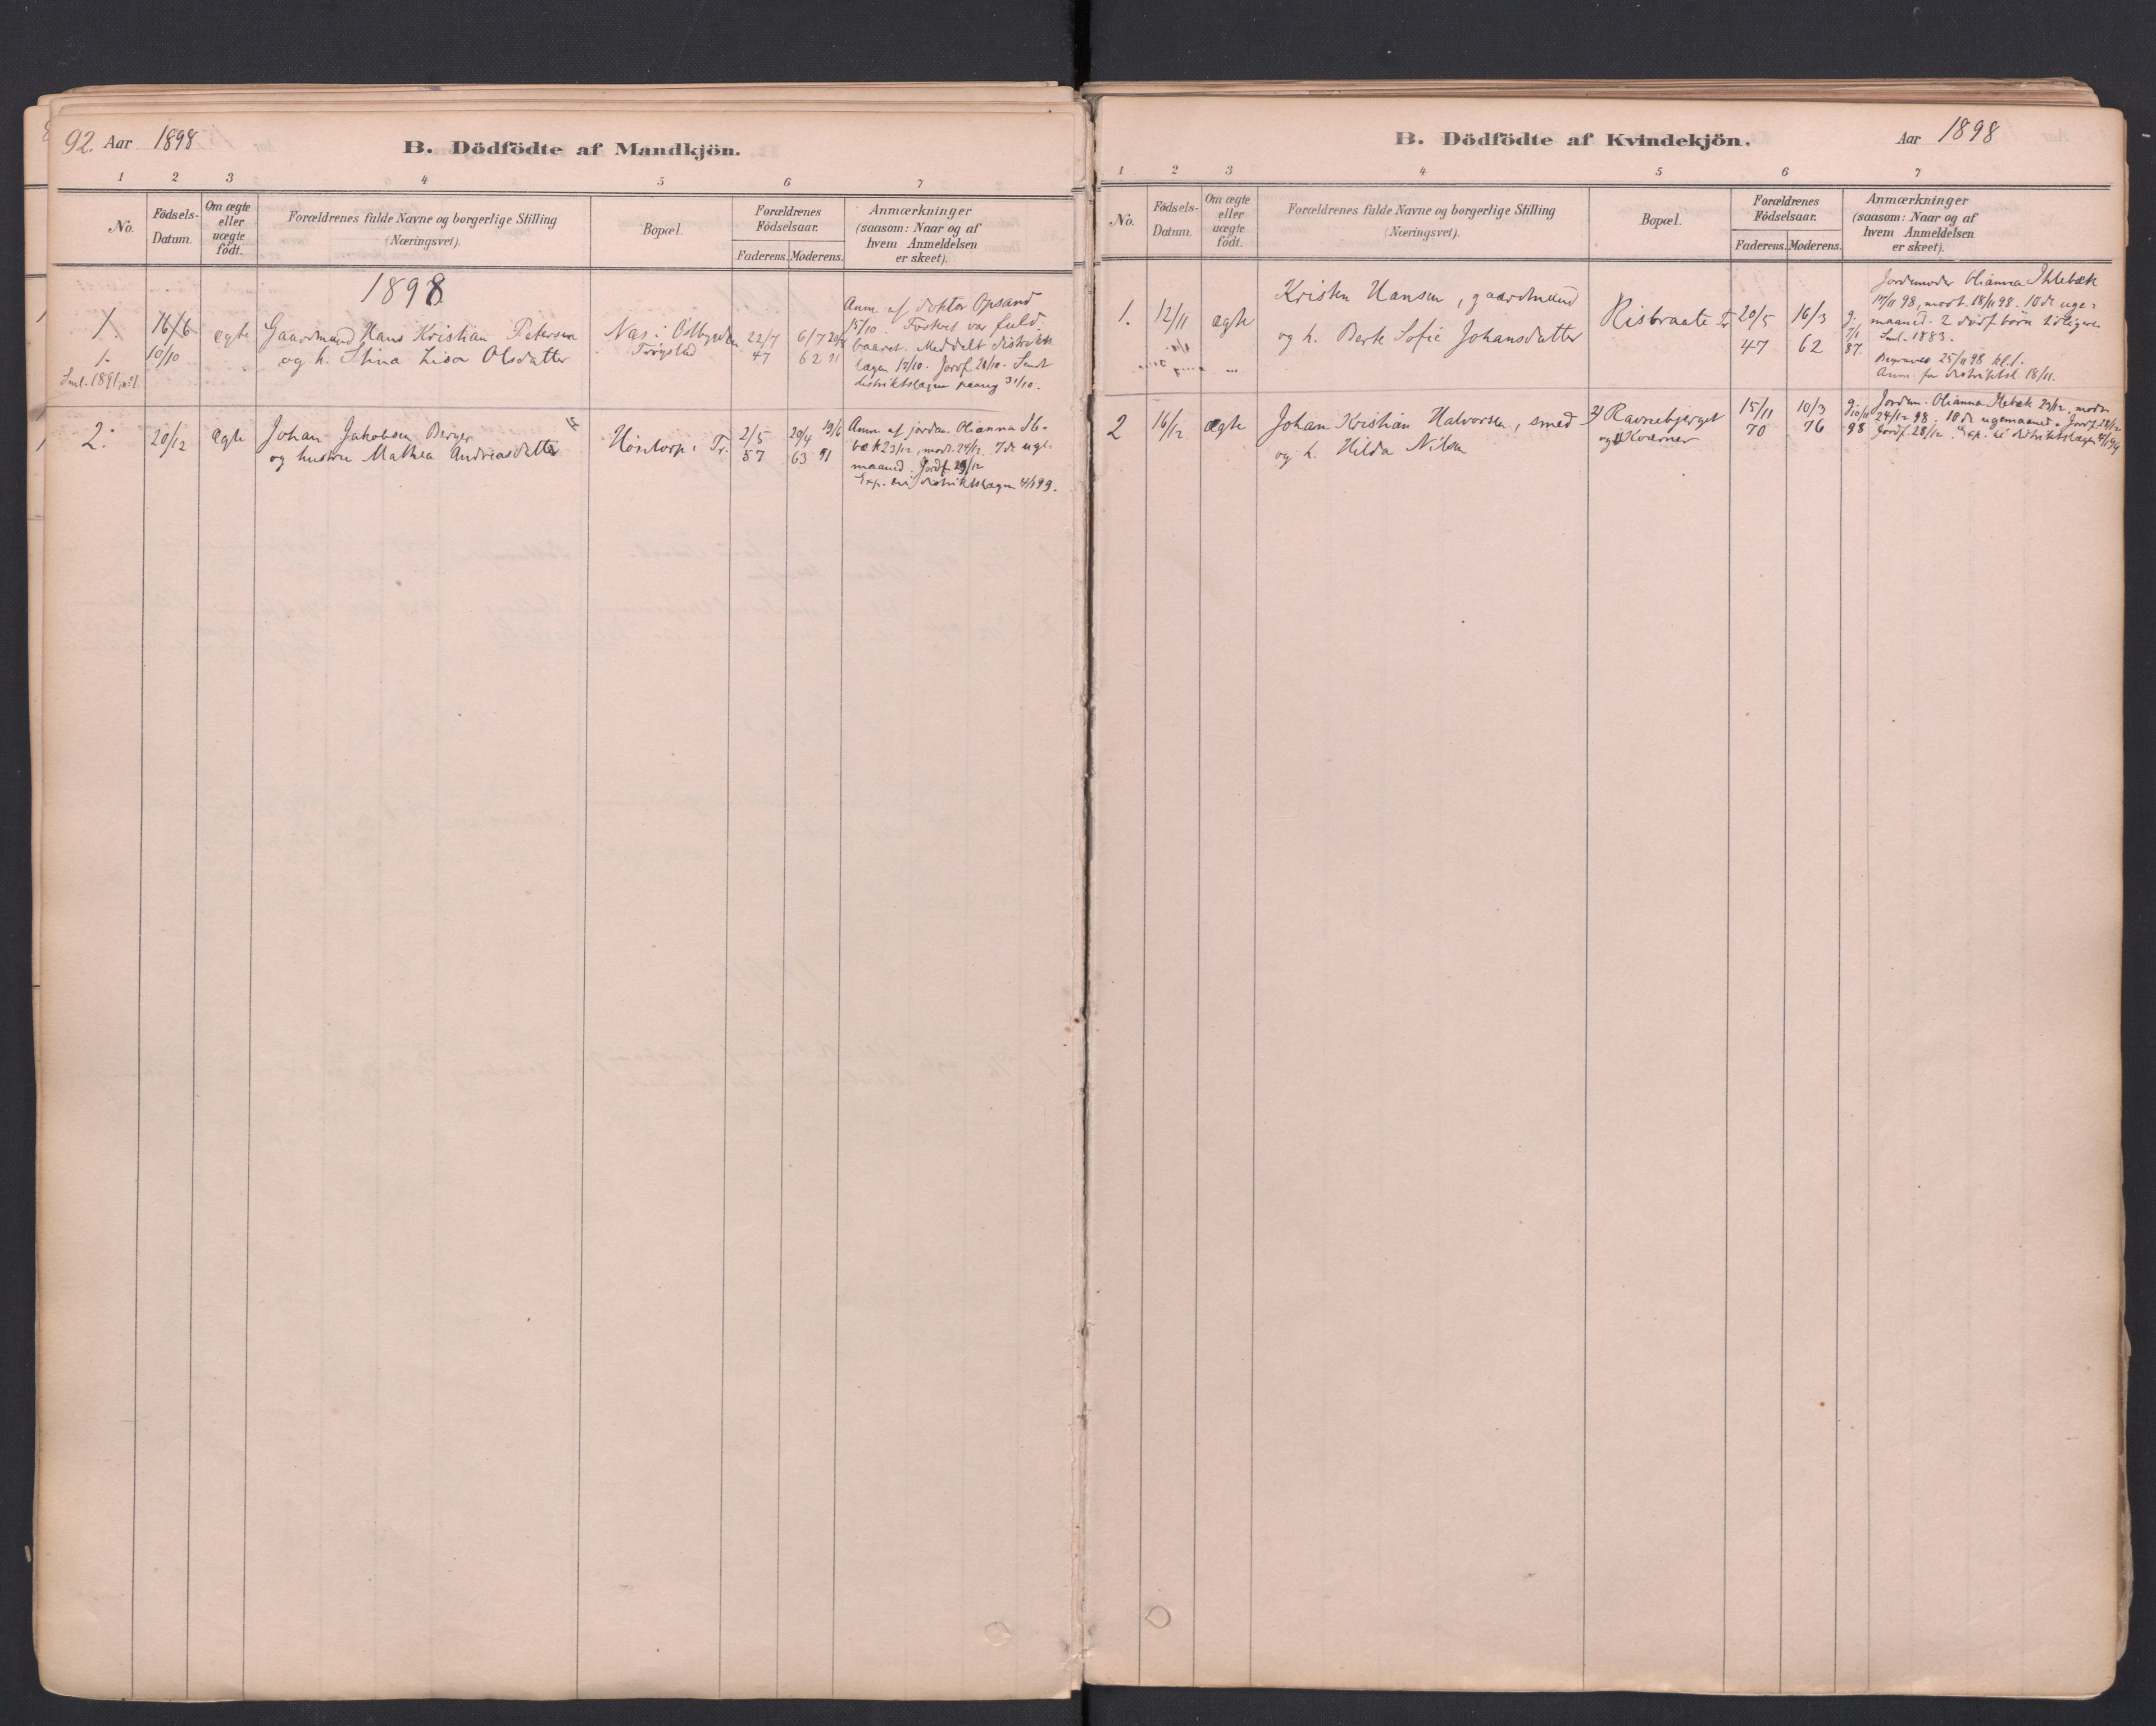 92. Aar 1898
B. Dödfödte af Mandkjön.
1 2 3 4 5 6 7
No.
Födsels-
Datum.
Om ægte
eller
uægte
födt.
Forældrenes fulde Navne og borgerlige Stilling
(Næringsvei).
Bopæl.
Forældrenes
Födselsaar.
Faderens. Moderens.
Anmærkninger
(saasom: Naar og af
hvem Anmeldelsen
er skeet).
1898
1. 10/10 ægte Gaardmand Hans Kristian Petersen
og h. Stina Lisa Olsdatter
Sml. 1891, nr. 1.
Næs i Östbygden
Trøgstad
22/7
47
6/7
62 91
Anm. af doktor Opsand
15/10. Fosteret var fuld-
baaret. Meddelt distrikts-
lægen 15/10. Jordf. 20/10. Sendt
distriktslægen paany 31/10.
2. 20/12 ægte Johan Jakobsen Berger
og hustru Mathea Andreasdatter
Höntorp i Tr.
2/5
57
20/4 19/6
63 91
Anm. af jordm. Olianna Ih-
bæk 23/12, modt. 24/12. 7de uge-
maaned. Jordf. 29/12
Exp. til distriktslægen 4/1 99.
B. Dödfödte af Kvindekjön.
Aar 1898
1 2 3 4 5 6 7
No.
Födsels-
Datum.
Om ægte
eller
uægte
födt.
Forældrenes fulde Navne og borgerlige Stilling
(Næringsvei).
Bopæl.
Forældrenes
Födselsaar.
Faderens. Moderens.
Anmærkninger
(saasom: Naar og af
hvem Anmeldelsen
er skeet).
1. 12/11 ægte Kristen Hansen, gaardmand
og h. Berte Sofie Johansdatter
Risbraate Tr
20/5
47
16/3
62
g.
7/1
87.
Jordemoder Olianna Ihlebæk
17/11 98, modt. 18/11 98. 10de uge-
maaned. 2 dødf. børn tidligere
Sml. 1883.
Begravet 25/11 98 kl. 1.
Anm. for distriktsl. 18/11.
2 16/12 ægte Johan Kristian Halvorsen, smed
og h. Hilda Nilsen
Ravnebjerget
og Kværner
15/11
70
10/3
76
g.
10/11
98
Jordm. Olianna Ilebæk 23/12, modt.
24/12 98. 10de ugemaaned. Jordf. 28/12
Jordf. 28/12. Exp. til distriktslægen 4/1 99